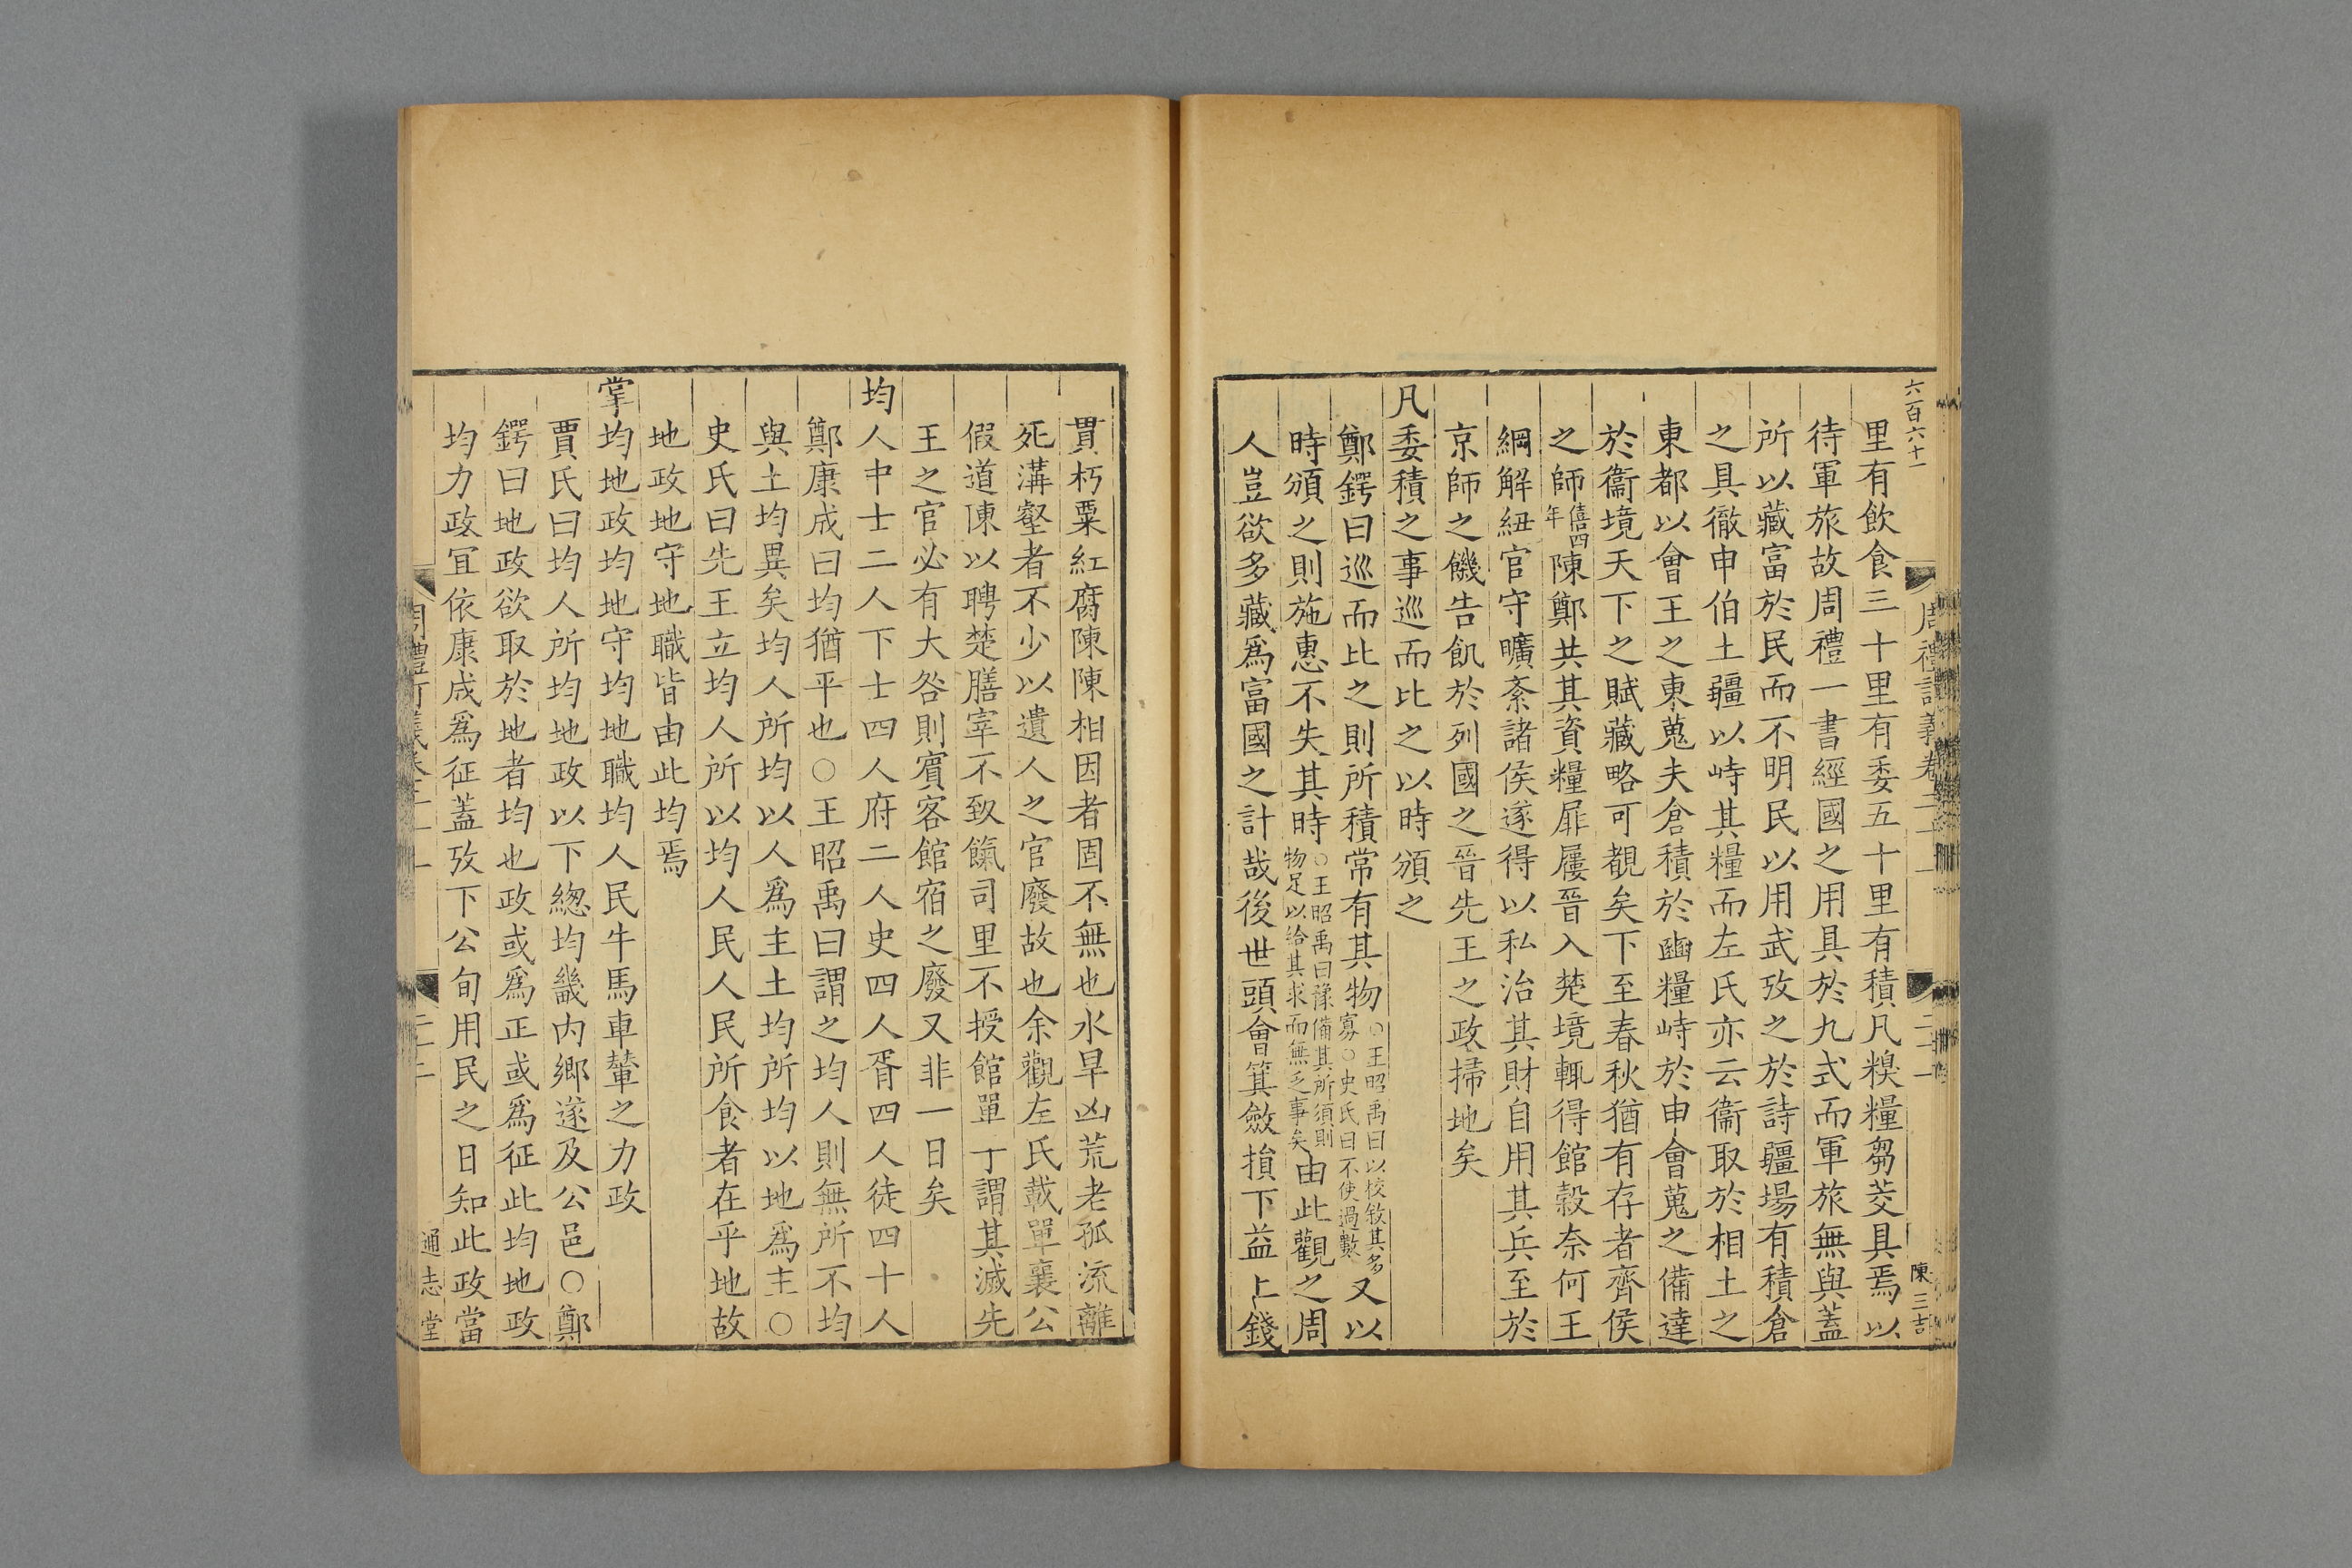 六百六十一
周禮訂義卷二十一
二十一
陳三吉
里有飲食三十里有委五十里有積凡糗糧芻茭具焉以
待軍旅故周禮一書經國之用具於九式而軍旅無與蓋
所以藏富於民而不明民以用武攷之於詩疆場有積倉
之具徹申伯土疆以峙其糧而左氏亦云衞取於相土之
東都以會王之東蒐夫倉積於豳糧峙於申會蒐之備達
於衞境天下之賦藏略可覩矣下至春秋猶有存者齊侯
之師僖四年陳鄭共其資糧屝屨晉入楚境輒得館穀奈何王
綱解紐官守曠紊諸侯遂得以私治其財自用其兵至於
京師之饑告飢於列國之晉先王之政掃地矣
凡委積之事巡而比之以時頒之
鄭鍔曰巡而比之則所積常有其物○王昭禹曰以校敘其多寡○史氏曰不使過數又以
時頒之則施惠不失其時○王昭禹曰豫備其所須則物足以給其求而無乏事矣由此觀之周
人豈欲多藏爲富國之計哉後世頭會箕斂損下益上錢
貫朽粟紅腐陳陳相因者固不無也水旱凶荒老孤流離
死溝壑者不少以遺人之官廢故也余觀左氏載單襄公
假道陳以聘楚膳宰不致餼司里不授館單丁謂其滅先
王之官必有大咎則賓客館宿之廢又非一日矣
均人中士二人下士四人府二人史四人胥四人徒四十人
鄭康成曰均猶平也○王昭禹曰謂之均人則無所不均
與土均異矣均人所均以人爲主土均所均以地爲主○
史氏曰先王立均人所以均人民人民所食者在乎地故
地政地守地職皆由此均焉
掌均地政均地守均地職均人民牛馬車輦之力政
賈氏曰均人所均地政以下緫均畿內鄉遂及公邑○鄭
鍔曰地政欲取於地者均也政或爲正或爲征此均地政
均力政宜依康成爲征蓋攷下公旬用民之日知此政當
通志堂